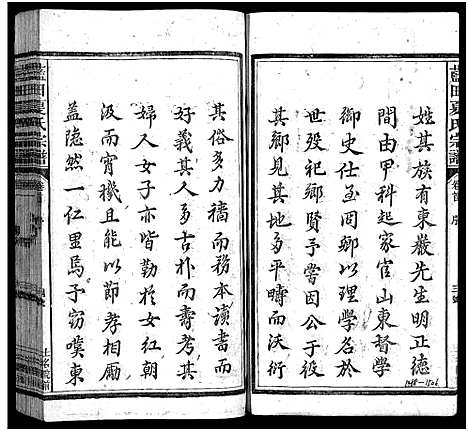 藍田夏氏宗譜
卷首
序
姓其族有東巖先生明正德
間由甲科起家官山東督學
御史仕至冏卿以理學名於
世歿祀鄉賢予嘗因公于役
其鄉見其地多平疇而沃衍
其俗多力穡而務本讀書而
好義其人多古朴而壽考其
婦人女子亦皆勤於女紅朝
汲而宵機且能以節孝相勵
蓋隐然一仁里焉予竊嘆東
藍田夏氏宗譜